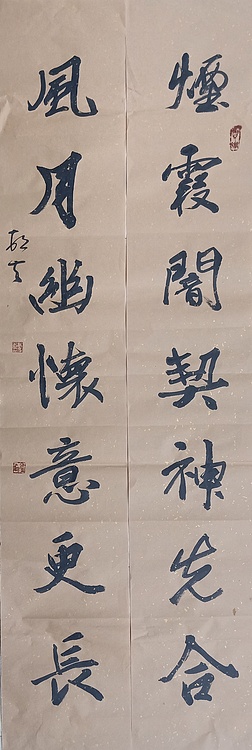 煙霞闇契神先合
風月幽懷意更長